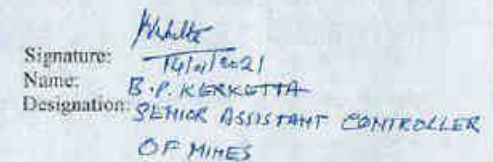 Signature:
14/01/2021
Name: B.P. KERKETTA
Designation: SENIOR ASSISTANT CONTROLLER
OF MINES